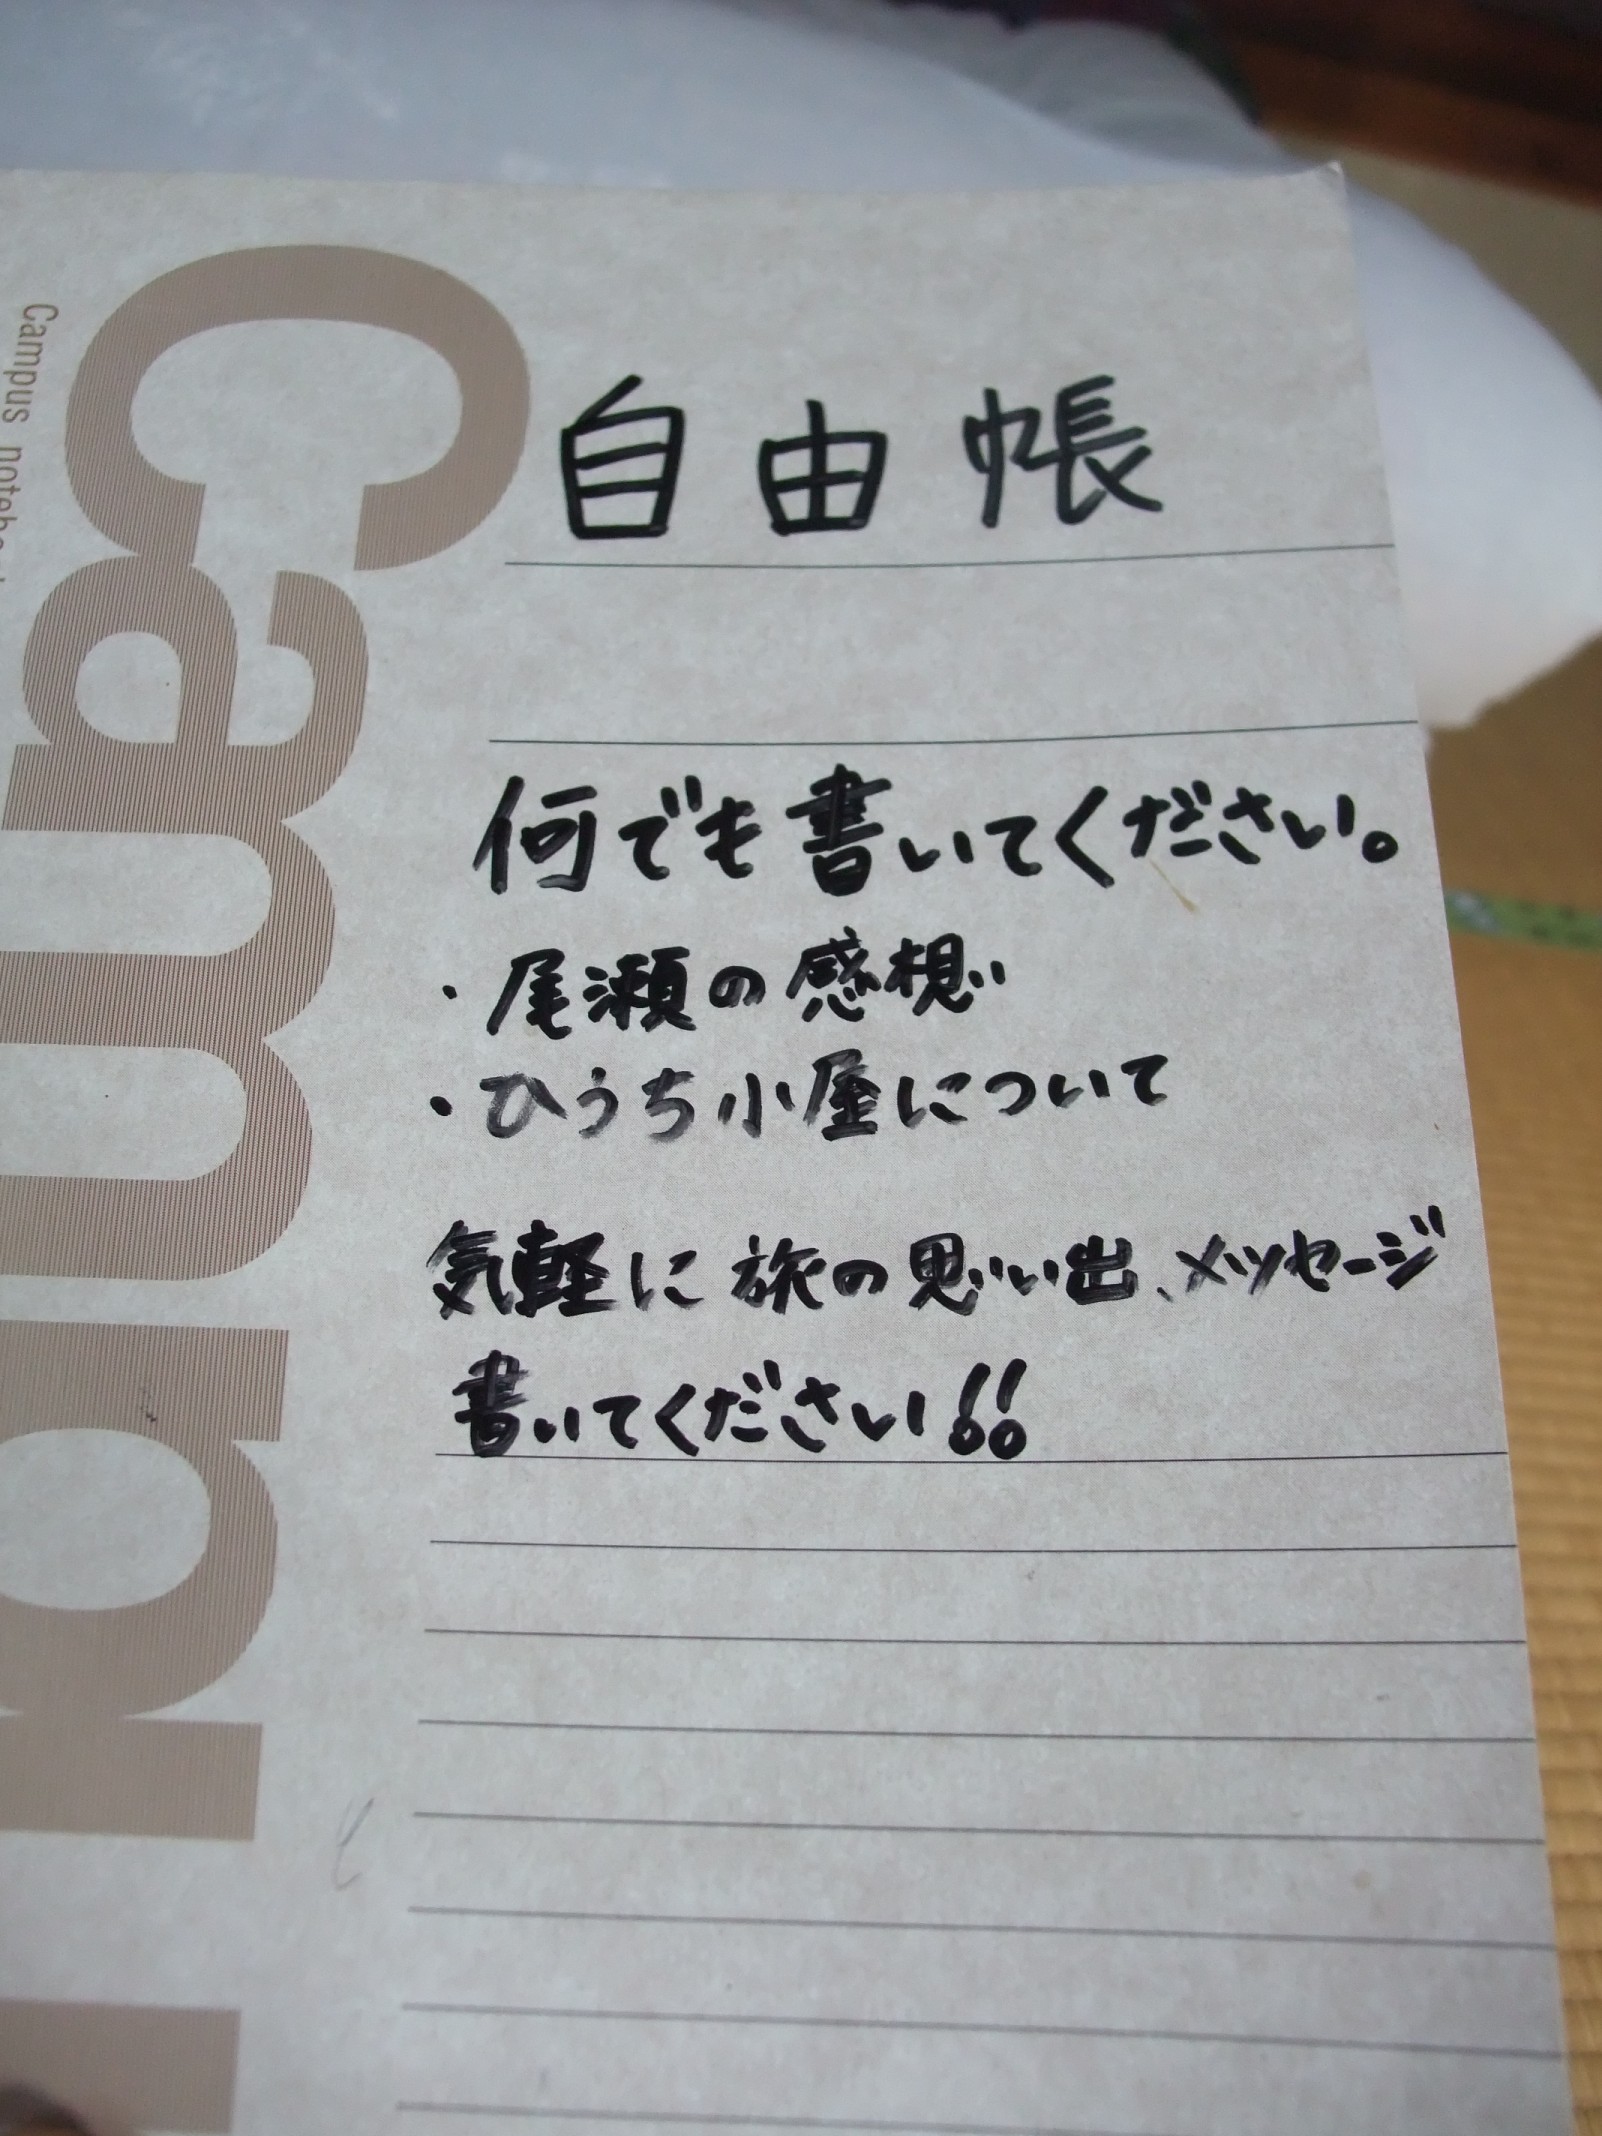 Campus
Campus note
自由帳
何でも書いてください。
・尾瀬の感想
・ひうち小屋について
気軽に旅の思い出、メッセージ
書いてください!!